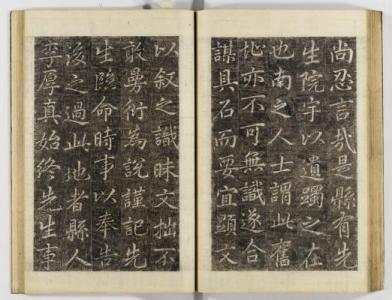 尚忍言哉是縣有先
生院宇以遺躅之在
也南之人士謂此舊
址亦不可無識遂合
謀具石而要宜顯文
以叙之識昧文拙不
敢曼衍為說謹記先
生臨命時事以奉告
後之過此地者縣人
李厚真始終先生事